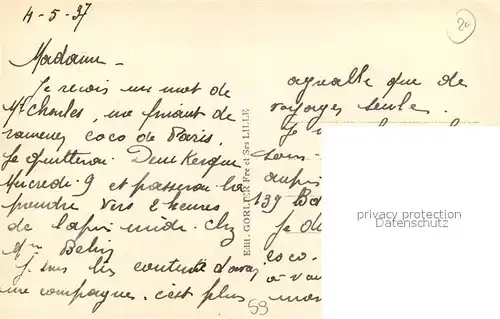 4-5-37
20
Madame -
Je reçois un mot de
Mr Charles, me priant de
ramener coco de Paris,
Je quitterai Dunkerque
Mercredi 9 et passerai la
prendre vers 2 heures
de l'après midi. chez
Mme
Je suis très contente d'avoir
une compagne. c'est plus
agréable que de
voyager seule.
Je
sous-
auprès
139 Ba
Je de
coco.
à vou
mon
Edit. GORLIER Fre et Srs LILLE
59
privacy protection
Datenschutz